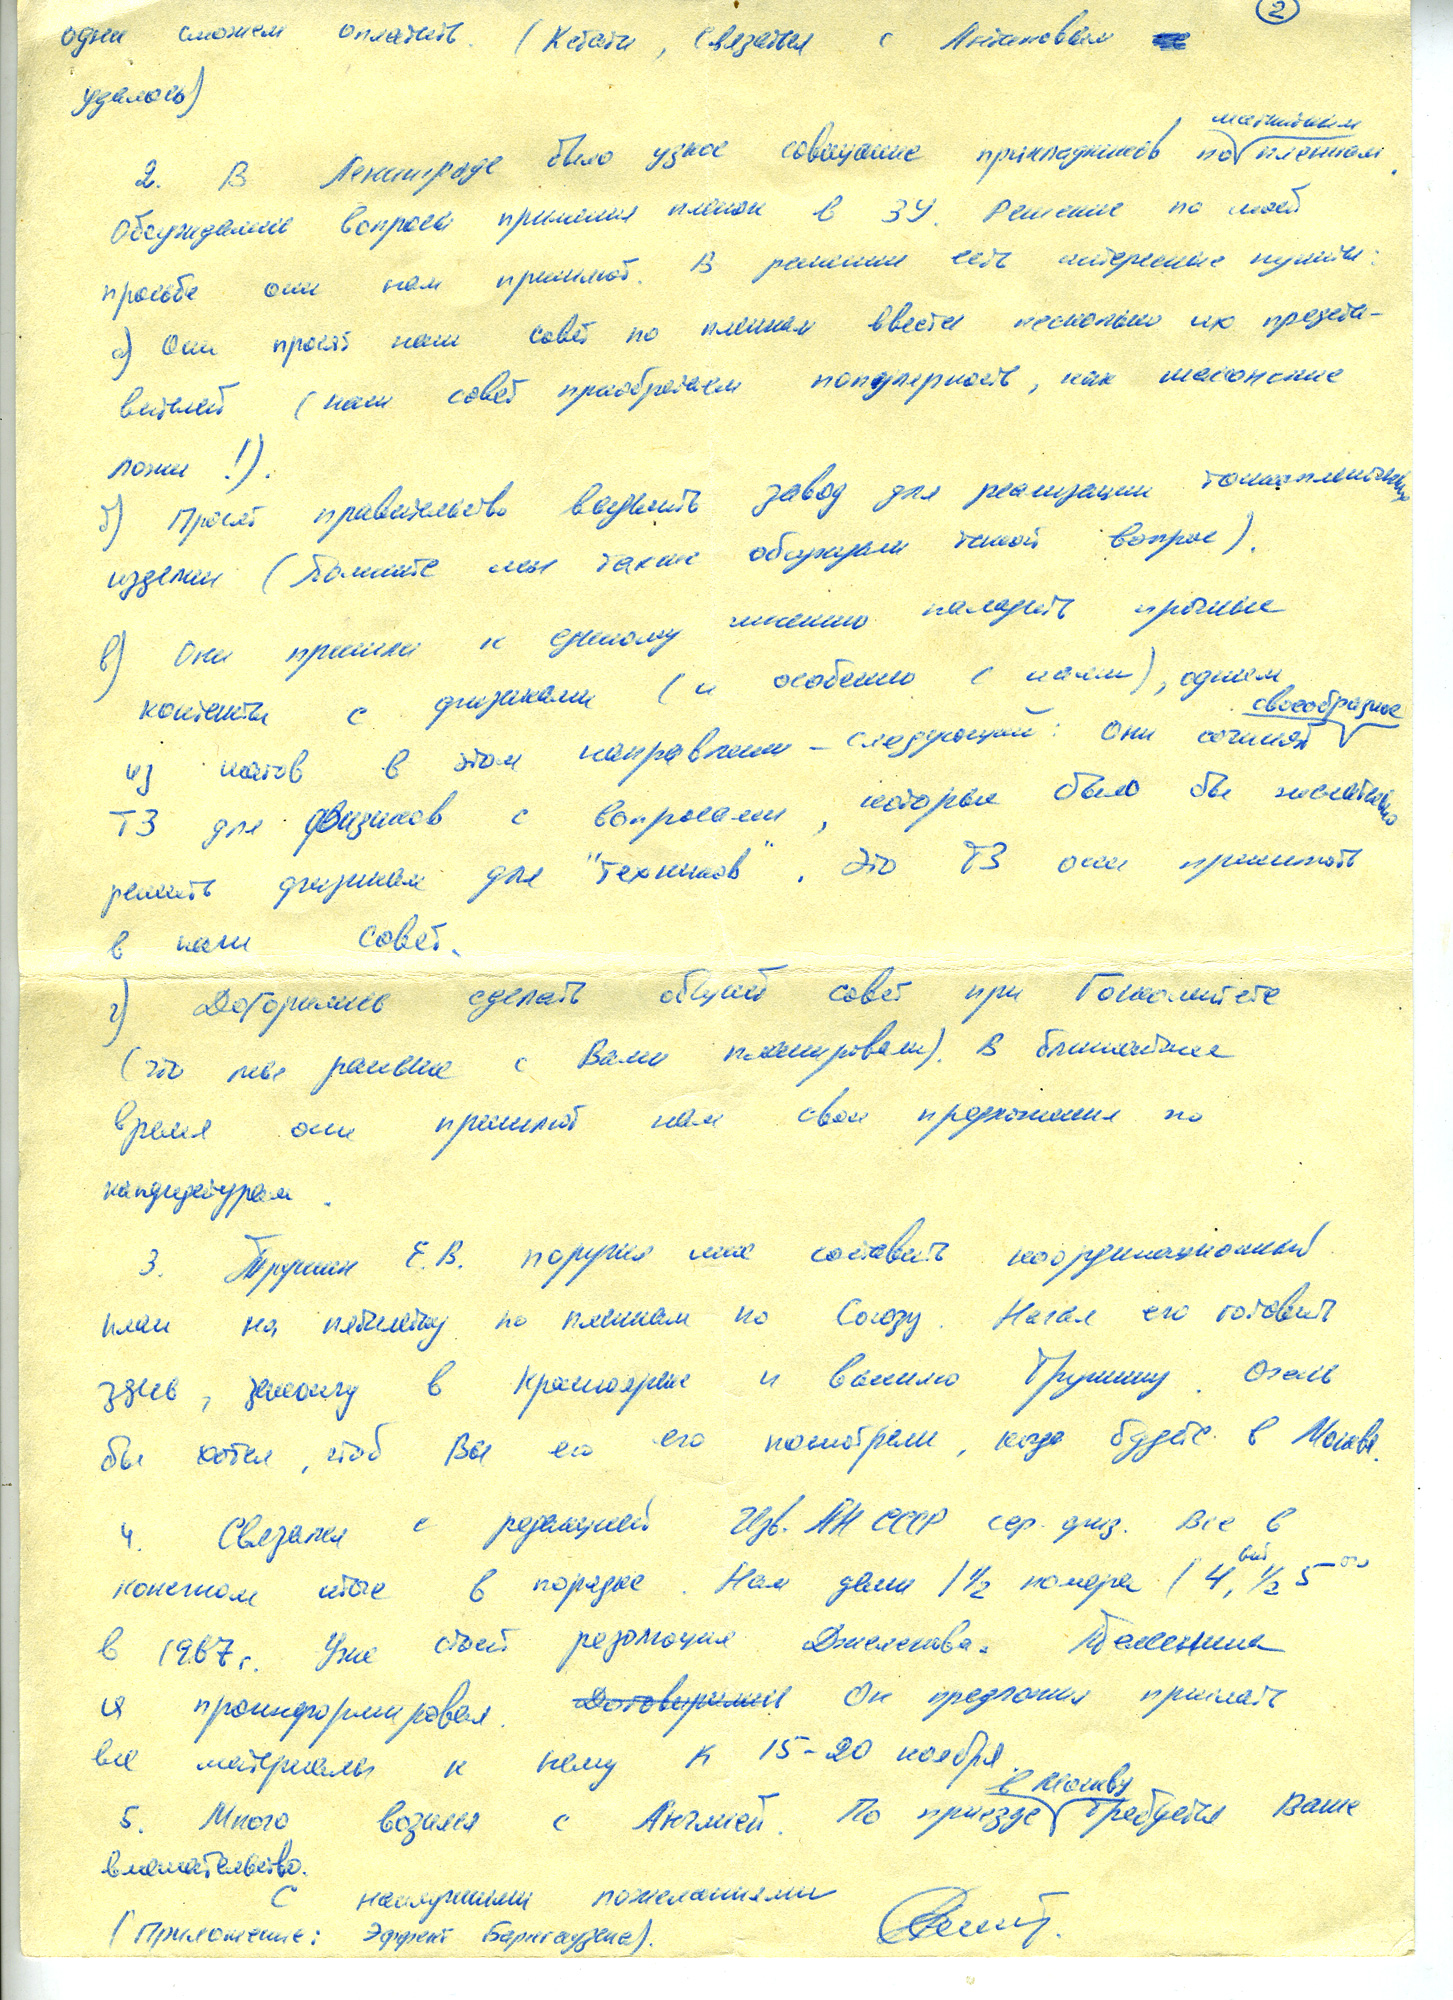 2
одни сможем оплатить. (Кстати, связаться с Антоновым
удалось)
2. В Ленинграде было узкое совещание прикладников по магнитным пленкам.
Обсуждались вопросы примения пленок в ЗУ. Решение по моей
просьбе они нам пришлют. В решении есть интересные пункты:
а) Они просят наш совет по пленкам ввести несколько их предста-
вителей (наш совет приобретает популярность, как масонские
ложи!).
б) Просят правительство выделить завод для реализации тонкопленочных
изделий (Помните мы также обсуждали такой вопрос).
в) Они пришли к единому мнению наладить прочные
контакты с физиками (и особенно с нами), одним
из шагов в этом направлении – следующий: Они сочинят своеобразное
ТЗ для физиков с вопросами, которые было бы желательно
решить физикам для "техников". Это ТЗ они пришлют
в наш совет.
г) Договорились сделать общий совет при Госкомитете
(что мы раньше с Вами планировали). В ближайшее
время они пришлют нам свои предложения по
кандидатурам.
3. Трушин Е.В. поручил мне составить координационный
план на пятилетку по пленкам по Союзу. Начал его готовить
здесь, закончу в Красноярске и вышлю Трушину. Очень
бы хотел, чтоб Вы его его посмотрели, когда будете в Москве.
4. Связался с редакцией Изв. АН СССР сер. физ. Все в
конечном итоге в порядке. Нам дали 1 1/2 номера (4, 1/2 5
в 1967г. Уже стоит резолюция Джелепова.
я проинформировал. Договорились Он предложил прислать
все материалы к нему к 15-20 ноября.
5. Много возился с Англией. По приезде в Москву требуется Ваше
вмешательство.
С наилучшими пожеланиями
(Приложение: Эффект Баркгаузена).